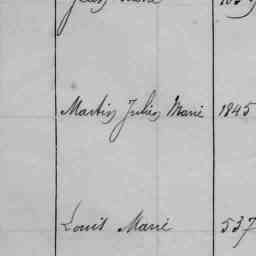 Martin Jules Marie 1845
Louis Marie 537